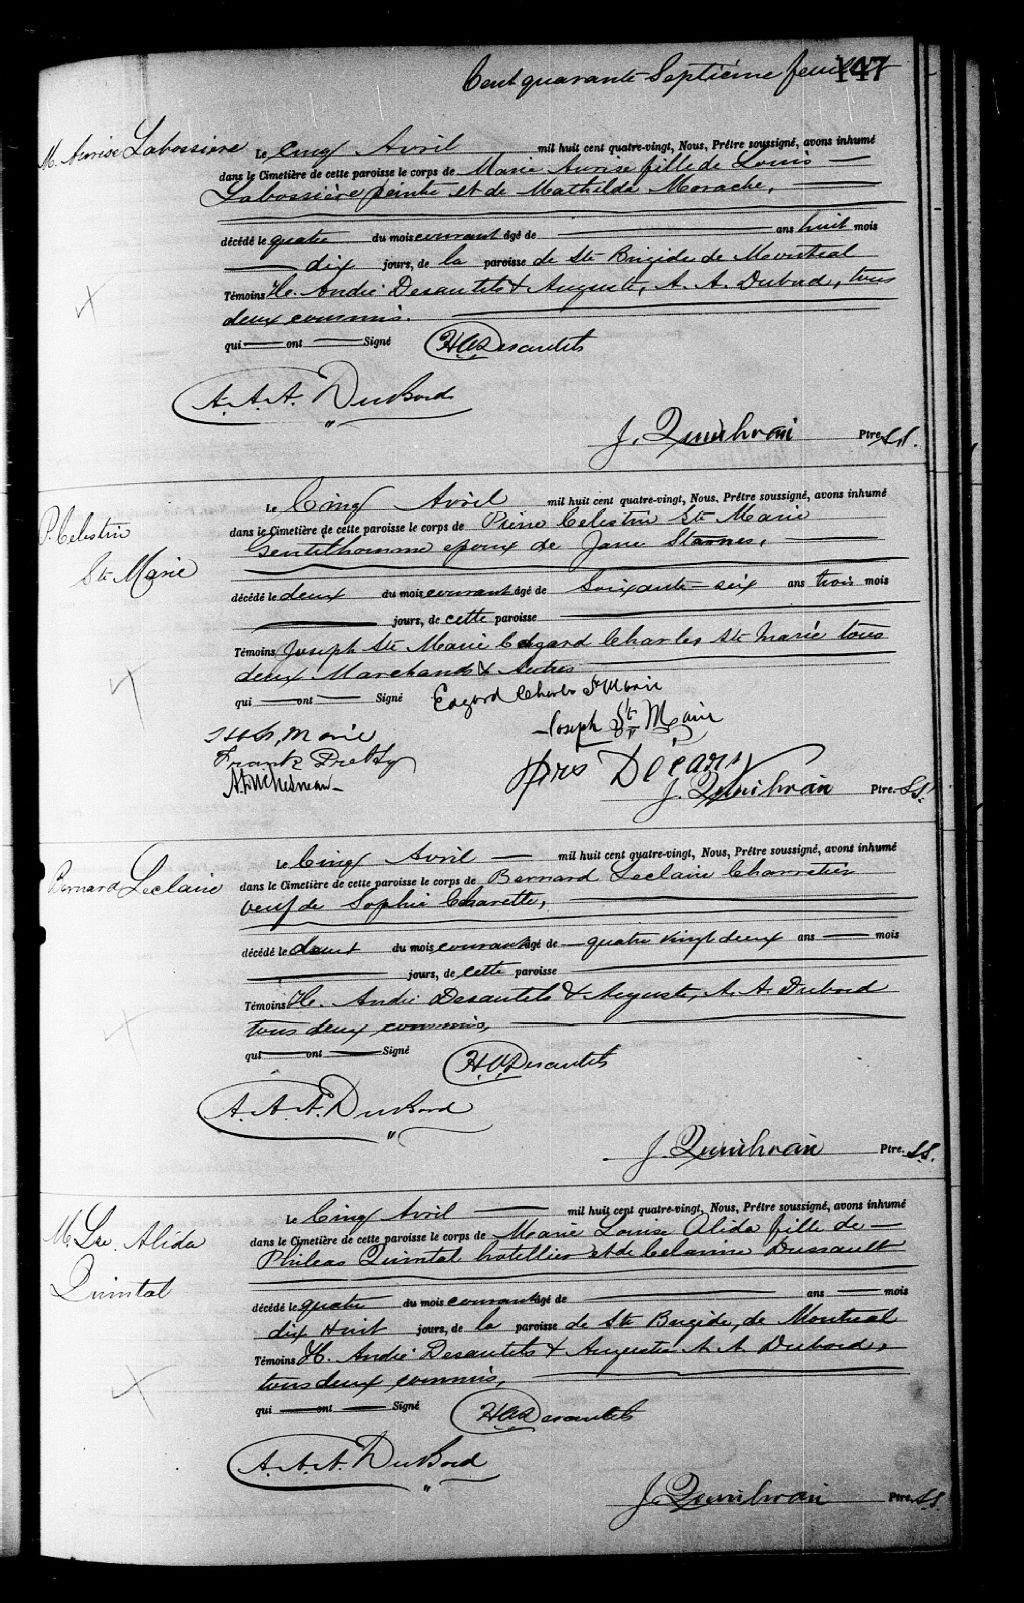 Cent quarante Septième feuillet 147
M. Aurise Labossière
Le Cinq Avril mil huit cent quatre-vingt, Nous, Prêtre soussigné, avons inhumé
dans le Cimetière de cette paroisse le corps de Marie Aurise fille de Louis
Labossière peintre et de Mathilde Morache,
décédé le quatre du mois courant âgé de ans huit mois
dix jours, de la paroisse de Ste Brigide de Montréal
Témoins H. André Desautels & Auguste, A. A. Dubord, tous
deux commis.
qui ont Signé HADesautels
A. A. A. DuBord
J. Ptre S.S.
P. Celestin
Ste Marie
Le Cinq Avril mil huit cent quatre-vingt, Nous, Prêtre soussigné, avons inhumé
dans le Cimetière de cette paroisse le corps de Pierre Celestin Ste Marie
Gentilhomme epoux de Jane Starnes,
décédé le deux du mois courant âgé de Soixante-six ans trois mois
jours, de cette paroisse
Témoins Joseph Ste Marie Edgard Charles Ste Marie tous
deux Marchands & Autres
qui ont Signé Edgard Charles St Marie
Joseph Ste Marie
Marie
Frank
A. Duchesneau
Décary
J. Ptre. S.S.
Bernard Leclaire
Le Cinq Avril mil huit cent quatre-vingt, Nous, Prêtre soussigné, avons inhumé
dans le Cimetière de cette paroisse le corps de Bernard Leclaire Charretier
veuf de Sophie Charette,
décédé le deux du mois courant âgé de quatre vingt deux ans mois
jours, de cette paroisse
Témoins H. André Desautels & Auguste, A. A. Dubord
tous deux commis,
qui ont Signé H.A.Desautels
A. A. A. DuBord
J. Ptre. S.S.
M. Lse. Alida
Quintal
Le Cinq Avril mil huit cent quatre-vingt, Nous, Prêtre soussigné, avons inhumé
dans le Cimetière de cette paroisse le corps de Marie Louise Alida fille de
Phileas Quintal hotellier et de Celanire Dussault
décédé le quatre du mois courant âgé de ans mois
dix Huit jours, de la paroisse de Ste Brigide, de Montreal
Témoins H. André Desautels & Auguste A. A. Dubord,
tous deux commis,
qui ont Signé HADesautels
A. A. A. DuBord
J. Ptre. S.S.